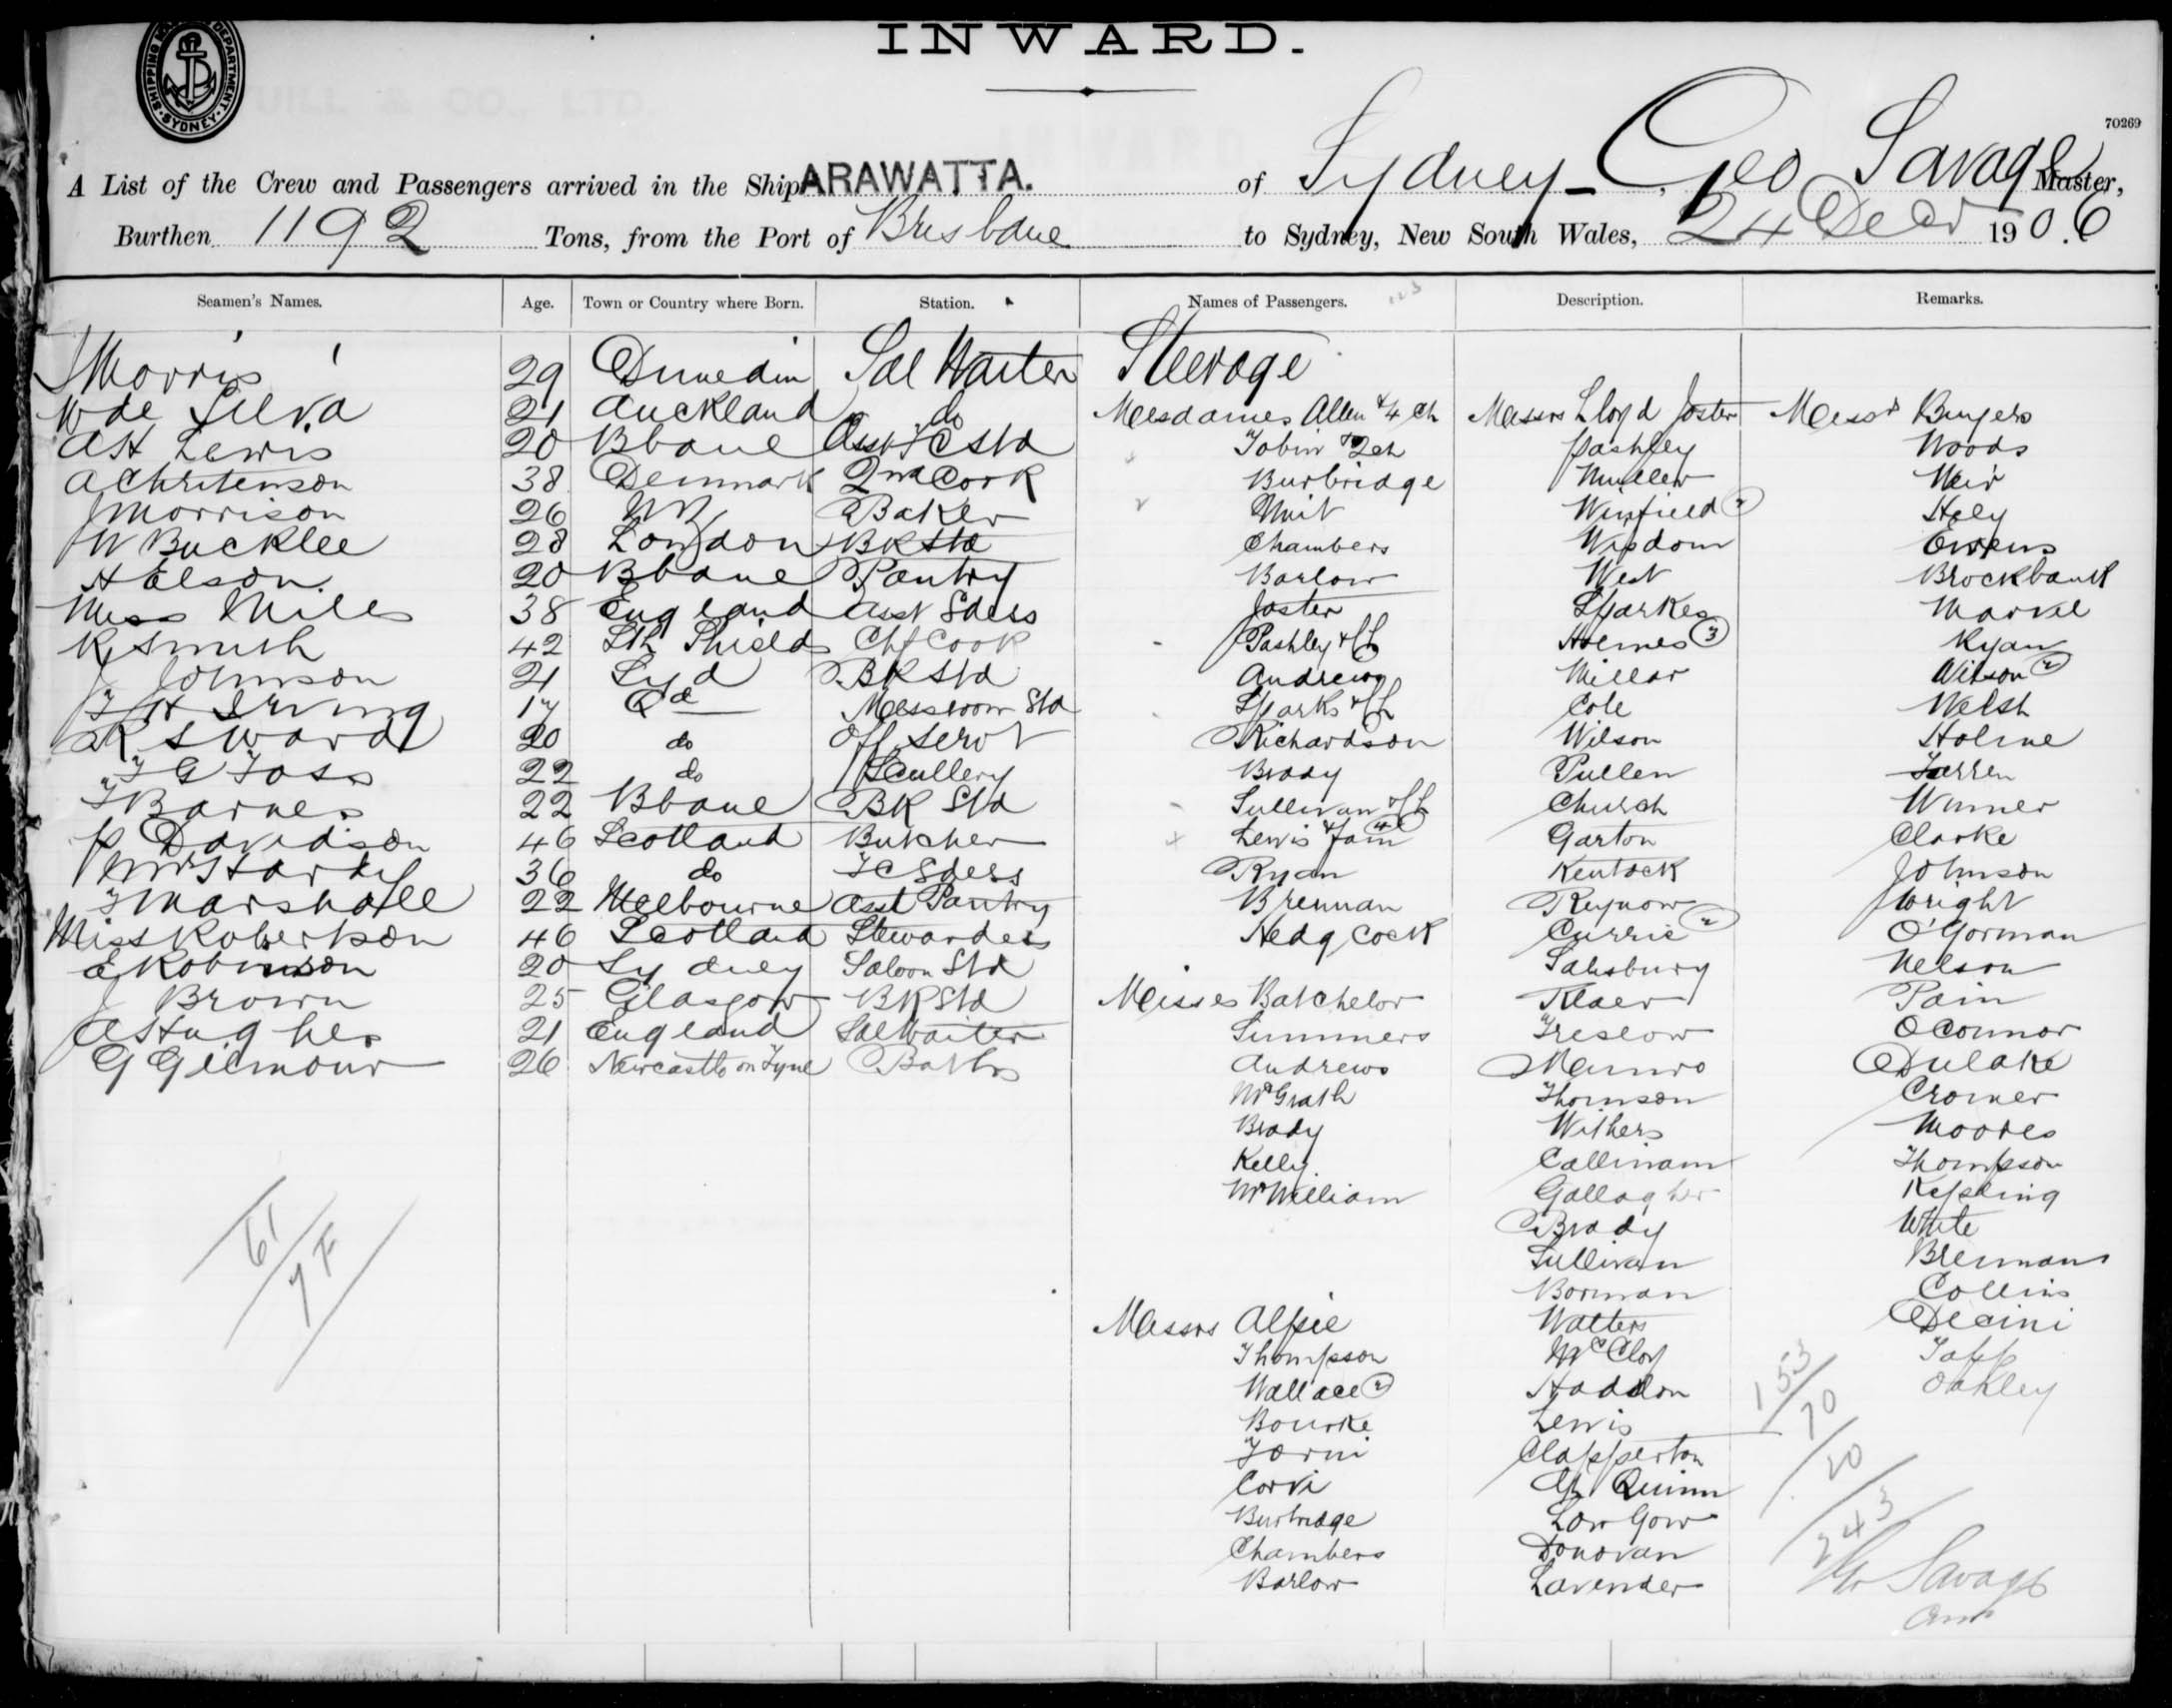 INWARD.
SHIPPING DEPARTMENT. SYDNEY
70269
A List of the Crew and Passengers arrived in the Ship ARAWATTA. of Sydney - Geo Savage Master,
Burthen 1192 Tons, from the Port of Brisbane to Sydney, New South Wales, 24 Decr 1906
Seamen's Names. Age. Town or Country where Born. Station. Names of Passengers. Description. Remarks.
Morris 29 Dunedin Sal Waiter Steerage
W de Silva 21 Auckland do Mesdames Allen & 4 ch Messrs Lloyd Joster Messrs Bingers
AH Lewis 20 Bbane Asst FC Std Tobin & 2 ch Pashley Woods
A Christenson 38 Denmark 2nd Cook Burbridge Mueller Weir
J Morrison 26 NZ Baker Muir Winfield 2 Hely
W Bucklee 28 London BK Std Chambers Wisdom Owens
H Elson 20 Bbane Pantry Barlow West Brockbank
Miss Miles 38 England Asst Sdess Joster Sparkes Marvel
R Smith 42 Sth Shields Chf Cook Pashley & ch Holmes 3 Ryan
J Johnson 21 Syd BK Std Andrews Millar Wilson 2
F H Irving 17 Qd Messroom Std Sparks & ch Cole Welsh
R Sward 20 do Off Servt Richardson Wilson Holme
F G Foss 22 do Scullery Brady Pullen Farren
F Barnes 22 Bbane BK Std Sullivan & ch Church Warner
P Davidson 46 Scotland Butcher Lewis & fam 4 Garton Clarke
Mrs Hardy 36 do FC Sdess Ryan Kentock Johnson
F Marshall 22 Melbourne Asst Pantry Brennan Reynow Wright
Miss Robertson 46 Scotland Stewardess Hedgcock Currie 2 O'Gorman
E Robinson 20 Sydney Saloon Std Salisbury Nelson
J Brown 25 Glasgow BK Std Misses Batchelor Klaer Pain
A Hughes 21 England Sal Waiter Summers Treslow O'Connor
G Gilmour 26 Newcastle on Tyne Baths Andrews Munro Dulake
McGrath Thomson Cromer
Brady Withers Moores
Kelly Callinam Thompson
McWilliam Gallagher Kipling
Brady White
Sullivan Brennan
Borman Collins
Messrs Alpie Walters Decini
Thompson McCloy Tapp
Wallace 2 Haddon Oakley
Bourke Lewis
Forni Clapperton
Corvi Quinn
Burbridge Low Gow
Chambers Donovan
Barlow Lavender
61
7F
153
70
20
243
Savage